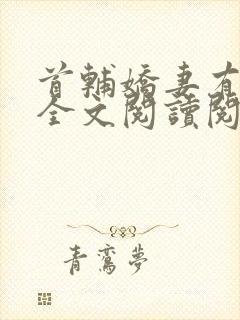 首輔嬌妻有
全文閱讀閱
青鸞夢